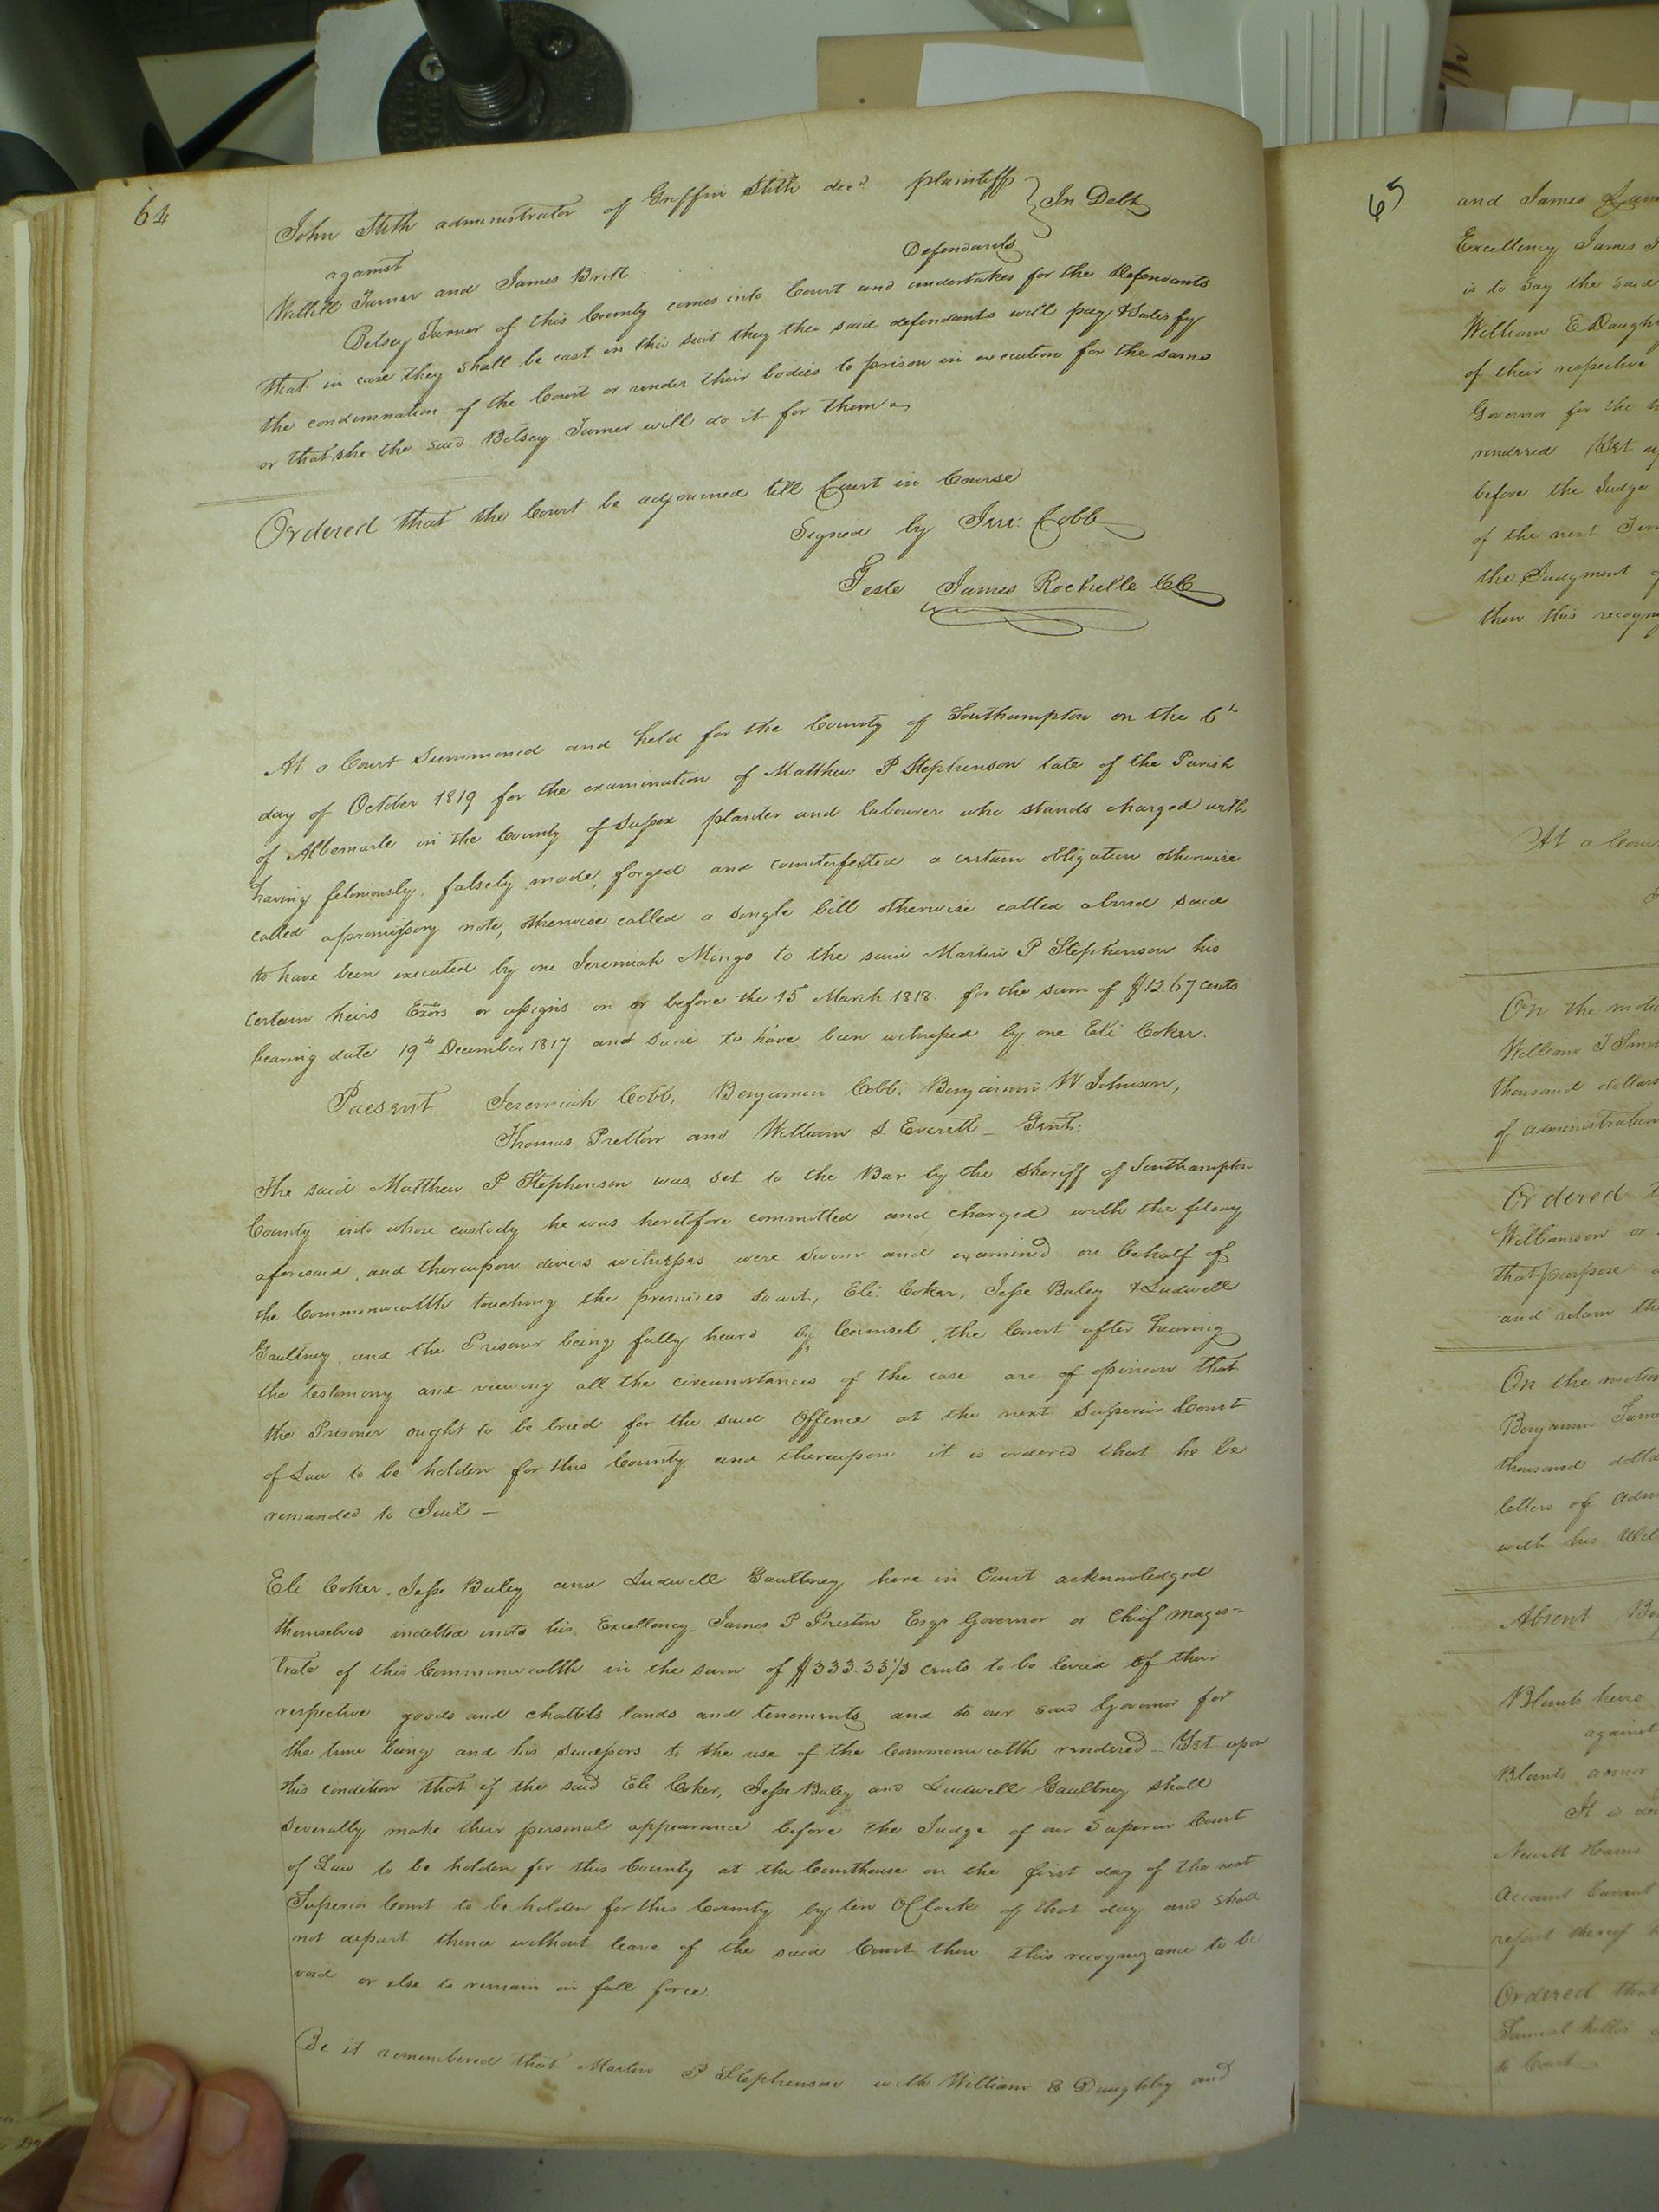 64
John Stith administrator of Griffin Stith decd. plaintiff } In Debt
against
Willill Turner and James Britt Defendants
Betsey Turner of this County comes into Court and undertakes for the Defendants
that in case they shall be cast in this suit they the said defendants will pay & Satisfy
the condemnation of the Court or render their bodies to prison in execution for the same
or that she the said Betsey Turner will do it for them &
Ordered that the Court be adjourned till Court in Course
Signed by Jere: Cobb
Teste James Rochelle CC
At a Court Summoned and held for the County of Southampton on the 6th
day of October 1819 for the examination of Matthew P Stephenson late of the Parish
of Albemarle in the County of Sussex planter and labourer who stands charged with
having feloniously, falsely made, forged and counterfeited a certain obligation otherwise
called a promissory note, otherwise called a single bill otherwise called a bond said
to have been executed by one Jeremiah Mingo to the said Martin P Stephenson his
certain heirs Exors or assigns on or before the 15 March 1818. for the sum of $12.67 cents
bearing date 19th December 1817 and said to have been witnessed by one Eli Coker.
Present Jeremiah Cobb, Benjamin Cobb, Benjamin W Johnson,
Thomas Pretlow and William S. Everett - Gent:
The said Matthew P Stephenson was set to the Bar by the Sheriff of Southampton
County into whose custody he was heretofore committed and charged with the felony
aforesaid, and thereupon divers witnesses were sworn and examined on behalf of
the Commonwealth touching the premises to wit, Eli Coker, Jesse Baley & Ludwell
Gaultney, and the Prisoner being fully heard by Counsel, the Court after hearing
the testimony and viewing all the circumstances of the case are of opinion that
the Prisoner ought to be tried for the said Offence at the next Superior Court
of Law to be holden for this County and thereupon it is ordered that he be
remanded to Jail -
Eli Coker, Jesse Baley and Ludwell Gaultney here in Court acknowledged
themselves indebted unto his Excellency James P Preston Esqr Governor or Chief Magis-
trate of this Commonwealth in the sum of $333.33 1/3 cents to be levied of their
respective goods and chattels lands and tenements and to our said Governor for
the time being and his successors to the use of the Commonwealth rendered - Yet upon
this condition that if the said Eli Coker, Jesse Baley and Ludwell Gaultney shall
severally make their personal appearance before the Judge of our Superior Court
of Law to be holden for this County at the Courthouse on the first day of the next
Superior Court to be holden for this County by ten O Clock of that day and shall
not depart thence without leave of the said Court then this recognizance to be
void or else to remain in full force.
Be it remembered that Martin P Stephenson with William E Daughtry and
65
and James
Excellency James
is to say the said
William E Daugh
of their respective
Governor for the
rendered (Yet
before the Judge
of the next
the Judgment
then this recogn
At a Cour
On the motio
William J
thousand dollars
of administration
Ordered
Williamson or
that purpose
and return the
On the motion
Benjamin
thousand dolla
letters of Adm
with his Will
Absent
Blunts heirs
against
Blunts admor
It is
Newitt Harris
Account Current
report thereof
Ordered that
Samuel
to Court